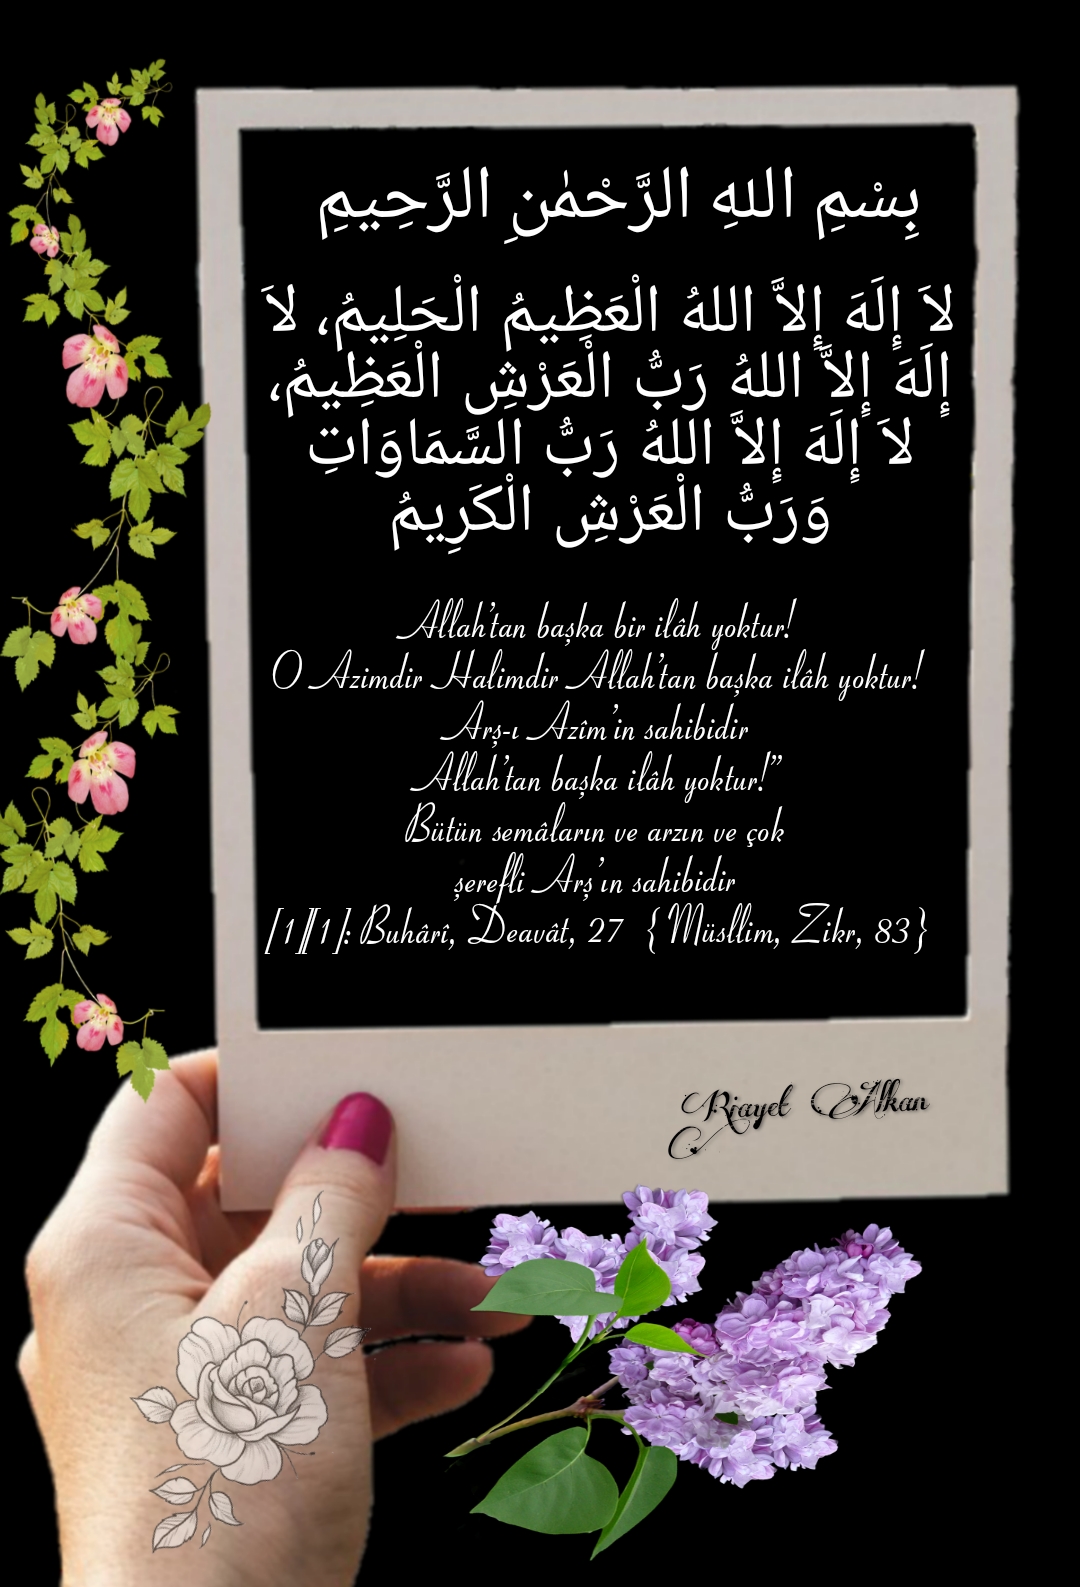 بِسْمِ اللهِ الرَّحْمٰنِ الرَّحِيمِ
لاَ إِلَهَ إِلاَّ اللهُ الْعَظِيمُ الْحَلِيمُ، لاَ
إِلَهَ إِلاَّ اللهُ رَبُّ الْعَرْشِ الْعَظِيمُ،
لاَ إِلَهَ إِلاَّ اللهُ رَبُّ السَّمَاوَاتِ
وَرَبُّ الْعَرْشِ الْكَرِيمُ
Allah'tan başka bir ilâh yoktur!
O Azimdir Halimdir Allah'tan başka ilâh yoktur!
Arş-ı Azîm'in sahibidir
Allah'tan başka ilâh yoktur!”
Bütün semâların ve arzın ve çok
şerefli Arş'ın sahibidir
[1][1]: Buhârî, Deavât, 27 {Müsllim, Zikr, 83}
Riayet Alkan